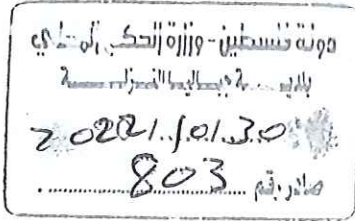 دولة فلسطين - وزارة الحكم المحلي
بلدية
2022/10/30
صادر رقم 803